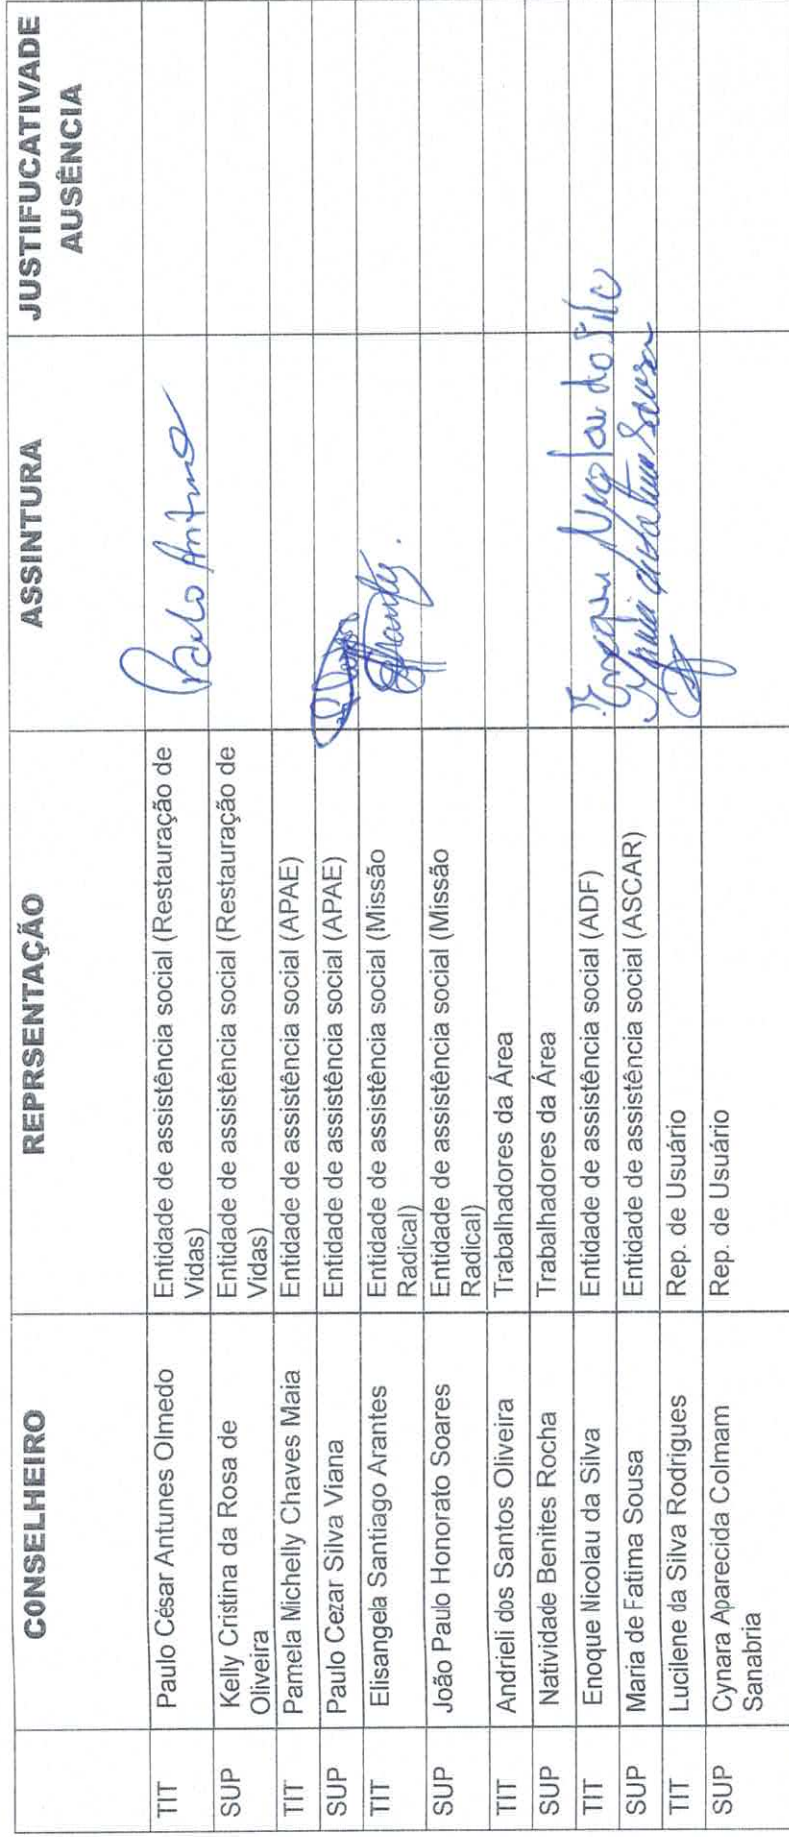 CONSELHEIRO REPRSENTAÇÃO ASSINTURA JUSTIFUCATIVADE
AUSÊNCIA
TIT Paulo César Antunes Olmedo Entidade de assistência social (Restauração de
Vidas) Paulo Antunes
SUP Kelly Cristina da Rosa de
Oliveira Entidade de assistência social (Restauração de
Vidas)
TIT Pamela Michelly Chaves Maia Entidade de assistência social (APAE)
SUP Paulo Cezar Silva Viana Entidade de assistência social (APAE)
TIT Elisangela Santiago Arantes Entidade de assistência social (Missão
Radical) Arantes.
SUP João Paulo Honorato Soares Entidade de assistência social (Missão
Radical)
TIT Andrieli dos Santos Oliveira Trabalhadores da Área
SUP Natividade Benites Rocha Trabalhadores da Área
TIT Enoque Nicolau da Silva Entidade de assistência social (ADF) Enoque Nicolau da Silva
SUP Maria de Fatima Sousa Entidade de assistência social (ASCAR) Maria de Fatima Sousa
TIT Lucilene da Silva Rodrigues Rep. de Usuário
SUP Cynara Aparecida Colmam
Sanabria Rep. de Usuário